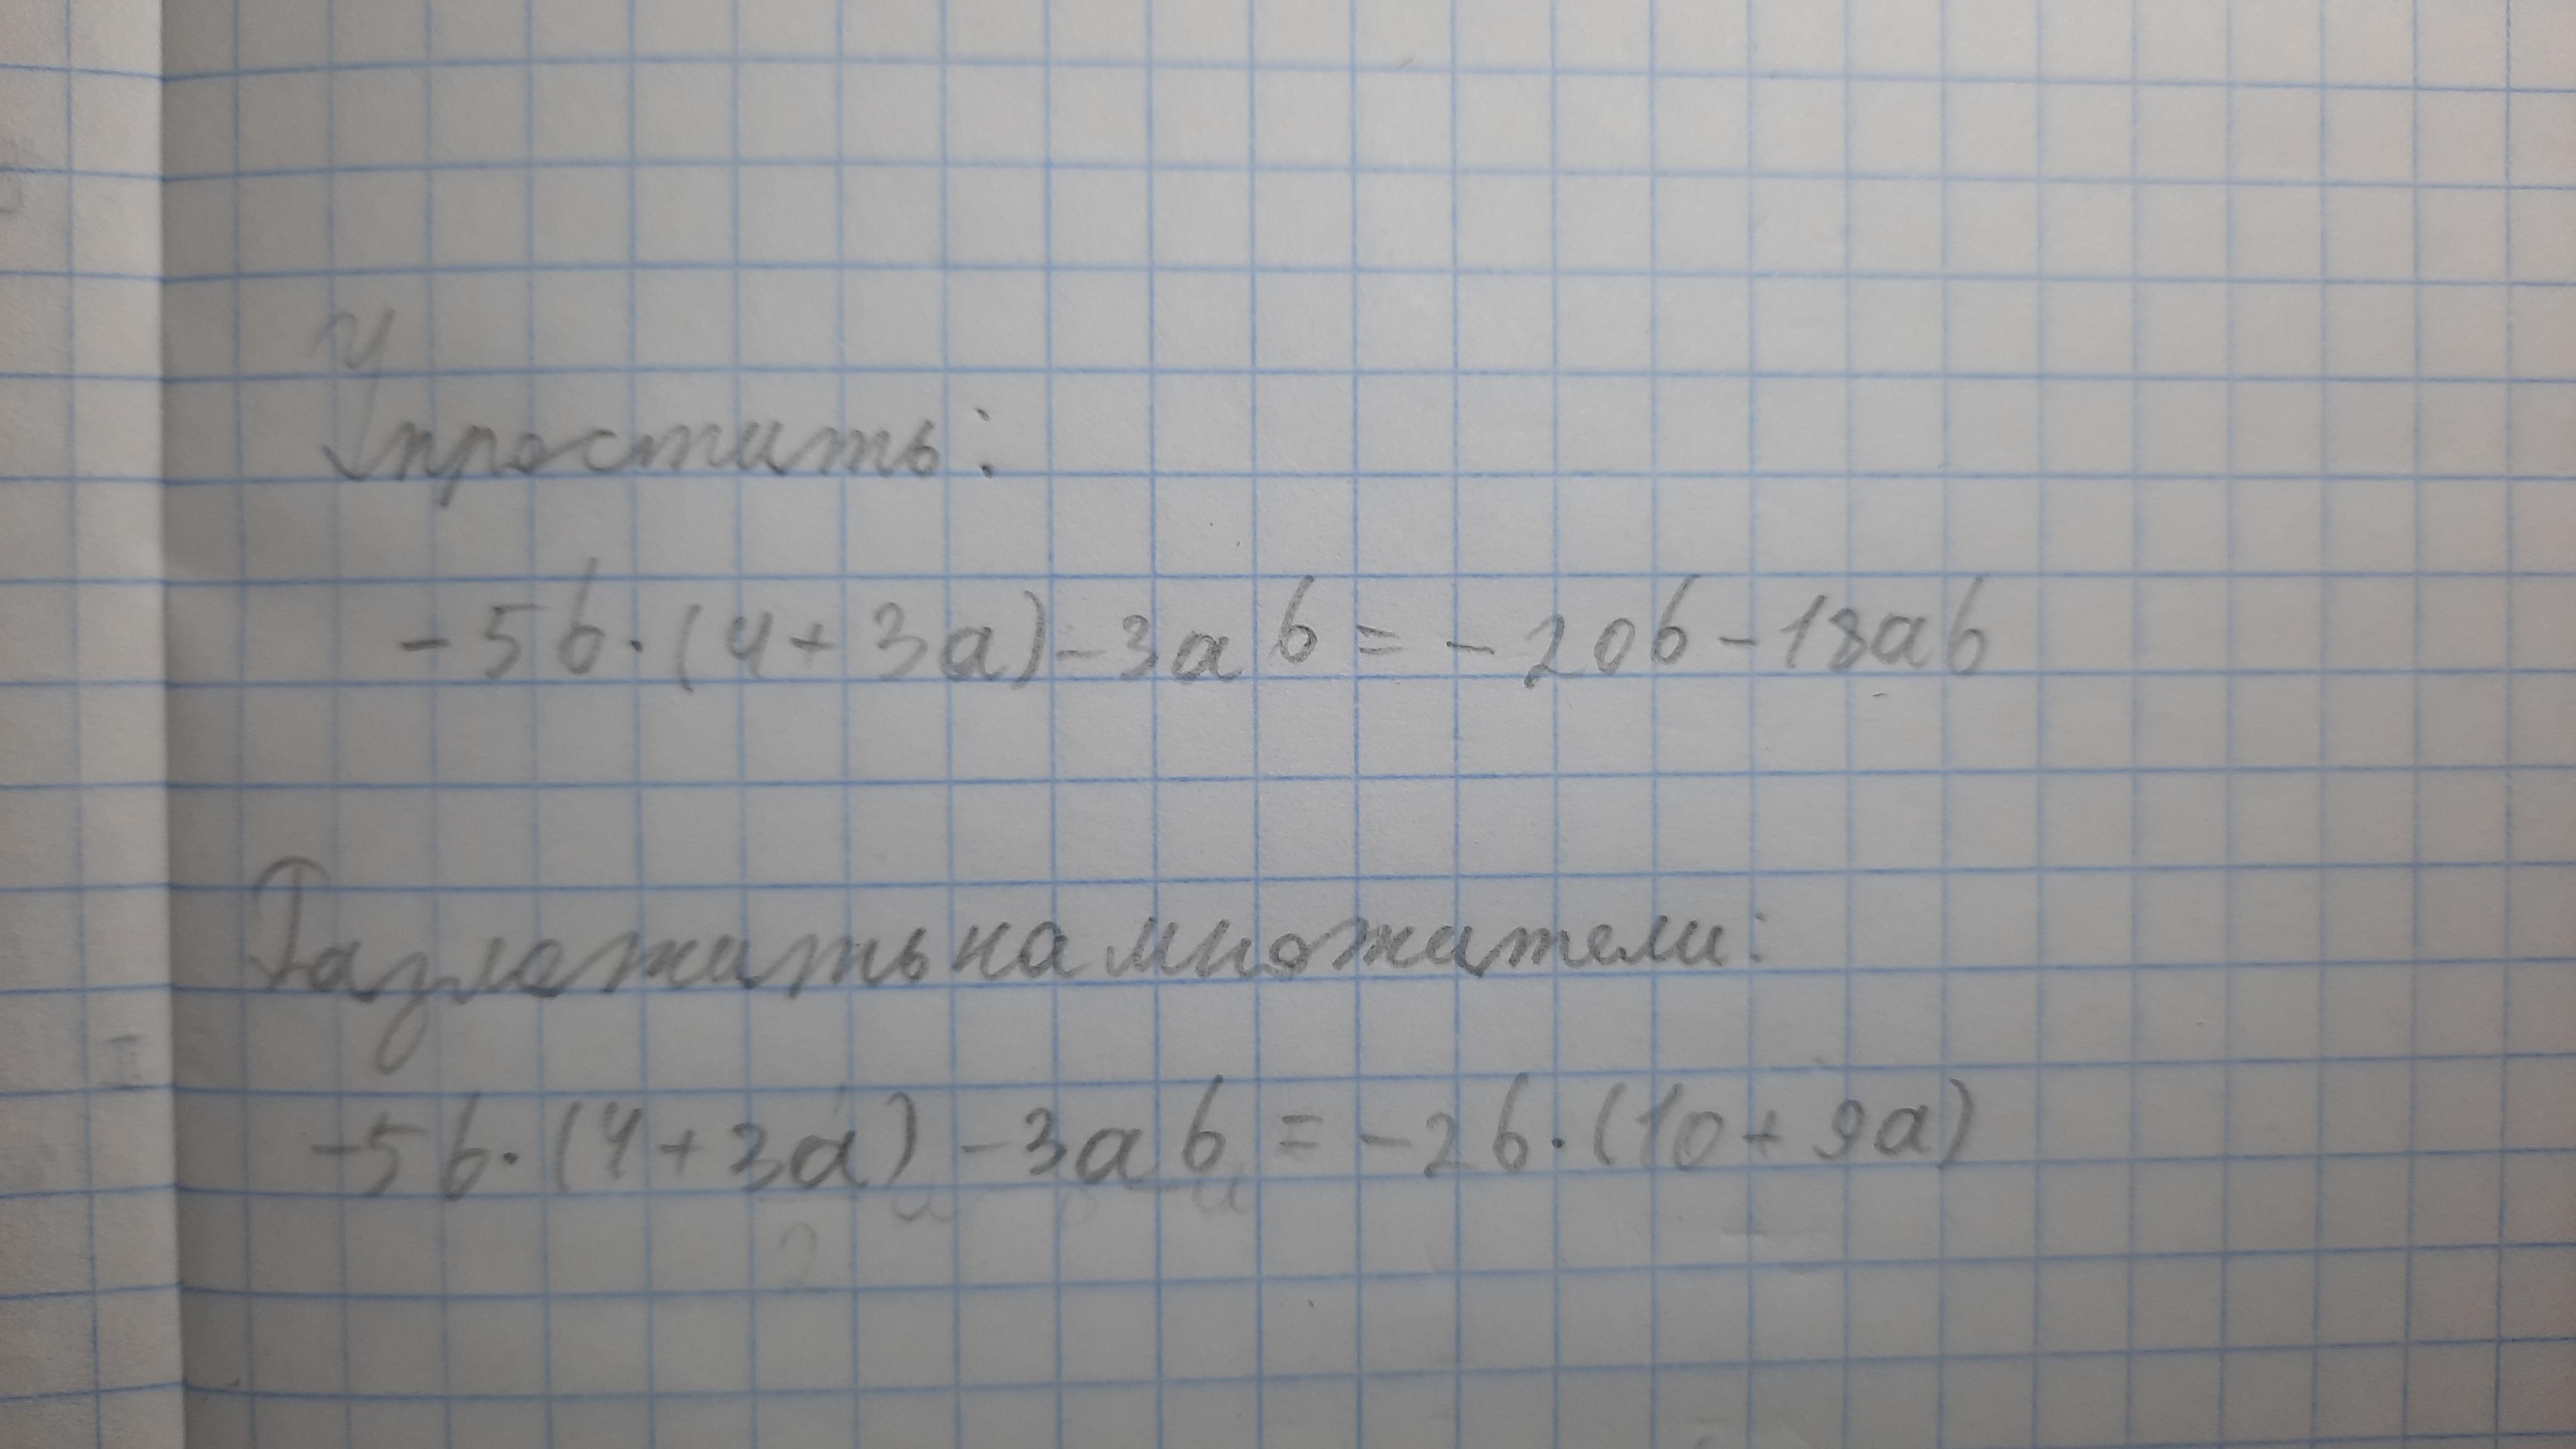 Упростить:
-5b·(4+3a)-3ab=-20b-18ab
Разложить на множители:
-5b·(4+3a)-3ab=-2b·(10+9a)